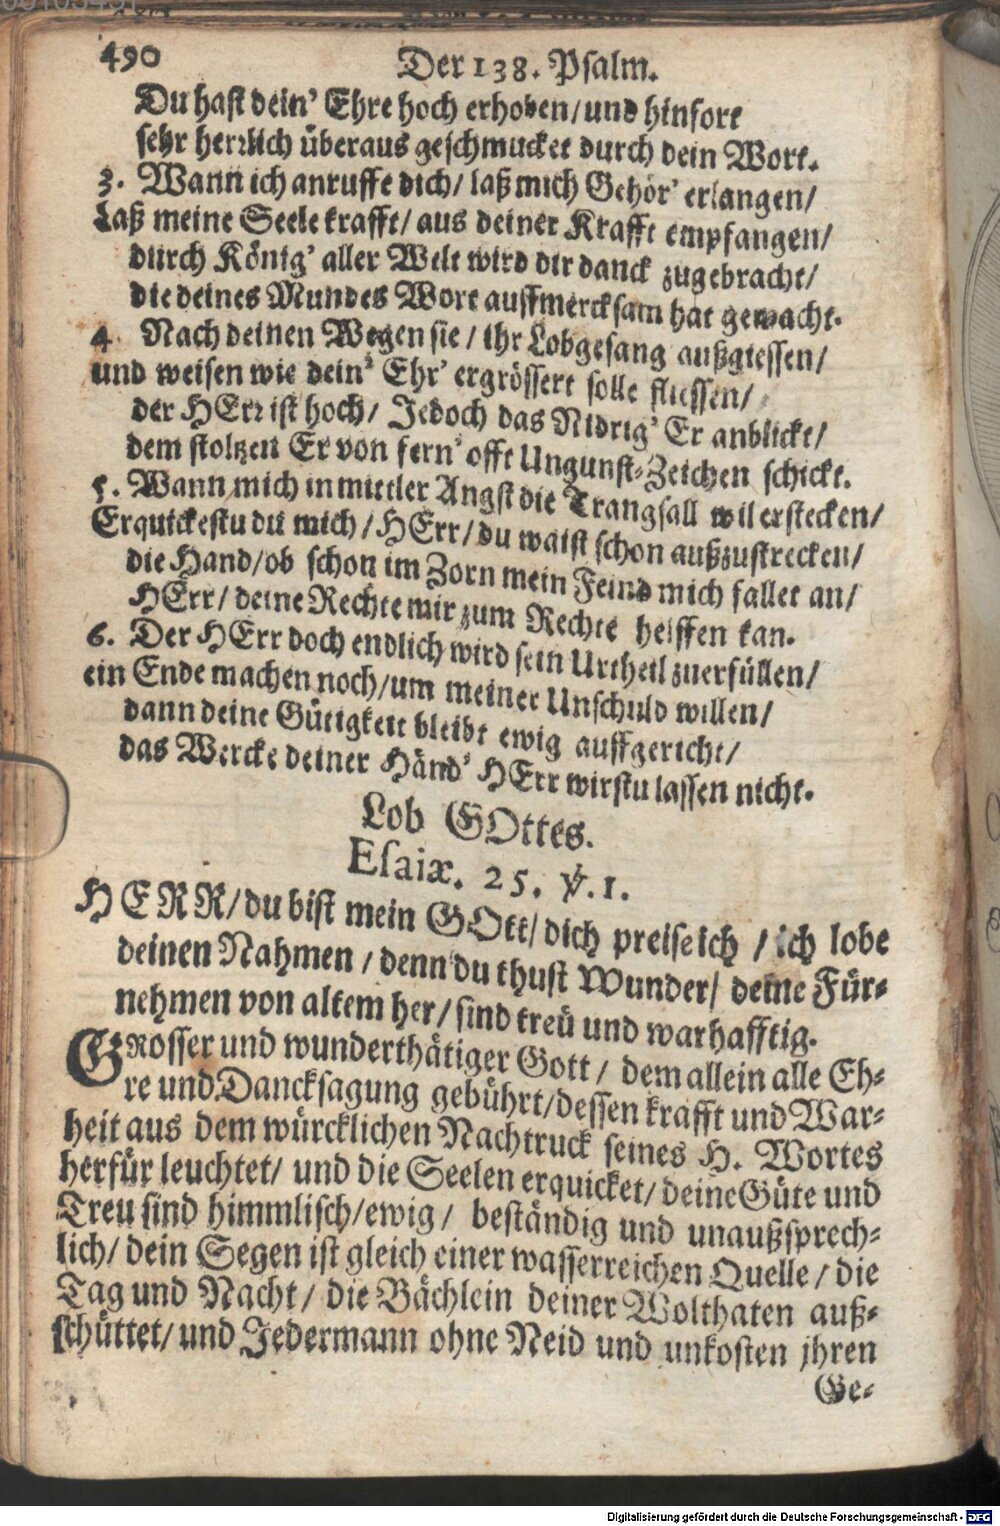 490
Der 138. Psalm.
Du hast dein' Ehre hoch erhoben/und hinfort
sehr herrlich überaus geschmucket durch dein Wort.
3. Wann ich anruffe dich/ laß mich Gehör' erlangen/
Laß meine Seele krafft/ aus deiner Krafft empfangen/
durch König' aller Welt wird dir danck zugebracht/
die deines Mundes Wort auffmercksam hat gemacht.
4. Nach deinen Wegen sie / ihr Lobgesang außgiessen/
und weisen wie dein' Ehr' ergrössert solle fliessen/
der HErr ist hoch/ Jedoch das Nidrig' Er anblickt/
dem stoltzen Er von fern' offt Ungunst-Zeichen schickt.
5. Wann mich in mittler Angst die Trangsall wil erstecken/
Erquickestu du mich/HErr/du waist schon außzustrecken/
die Hand/ob schon im Zorn mein Feind mich fallet an/
HErr/ deine Rechte mir zum Rechte helffen kan.
6. Der HErr doch endlich wird sein Urtheil zuerfüllen/
ein Ende machen noch/um meiner Unschuld willen/
dann deine Gütigkeit bleibt ewig auffgericht/
das Wercke deiner Händ' HErr wirstu lassen nicht.
Lob GOttes.
Esaiæ. 25. ℣. 1.
HERR/du bist mein GOtt/dich preise ich / ich lobe
deinen Nahmen / denn du thust Wunder/ deine Für-
nehmen von altem her/sind treü und warhafftig.
GRosser und wunderthätiger Gott / dem allein alle Eh-
re und Dancksagung gebührt/dessen krafft und War-
heit aus dem würcklichen Nachtruck seines H. Wortes
herfür leuchtet/ und die Seelen erquicket/deine Güte und
Treu sind himmlisch/ewig/ beständig und unaußsprech-
lich/ dein Segen ist gleich einer wasserreichen Quelle/ die
Tag und Nacht/ die Bächlein deiner Wolthaten auß-
schüttet/und Jedermann ohne Neid und unkosten jhren
Ge-
Digitalisierung gefördert durch die Deutsche Forschungsgemeinschaft - DFG